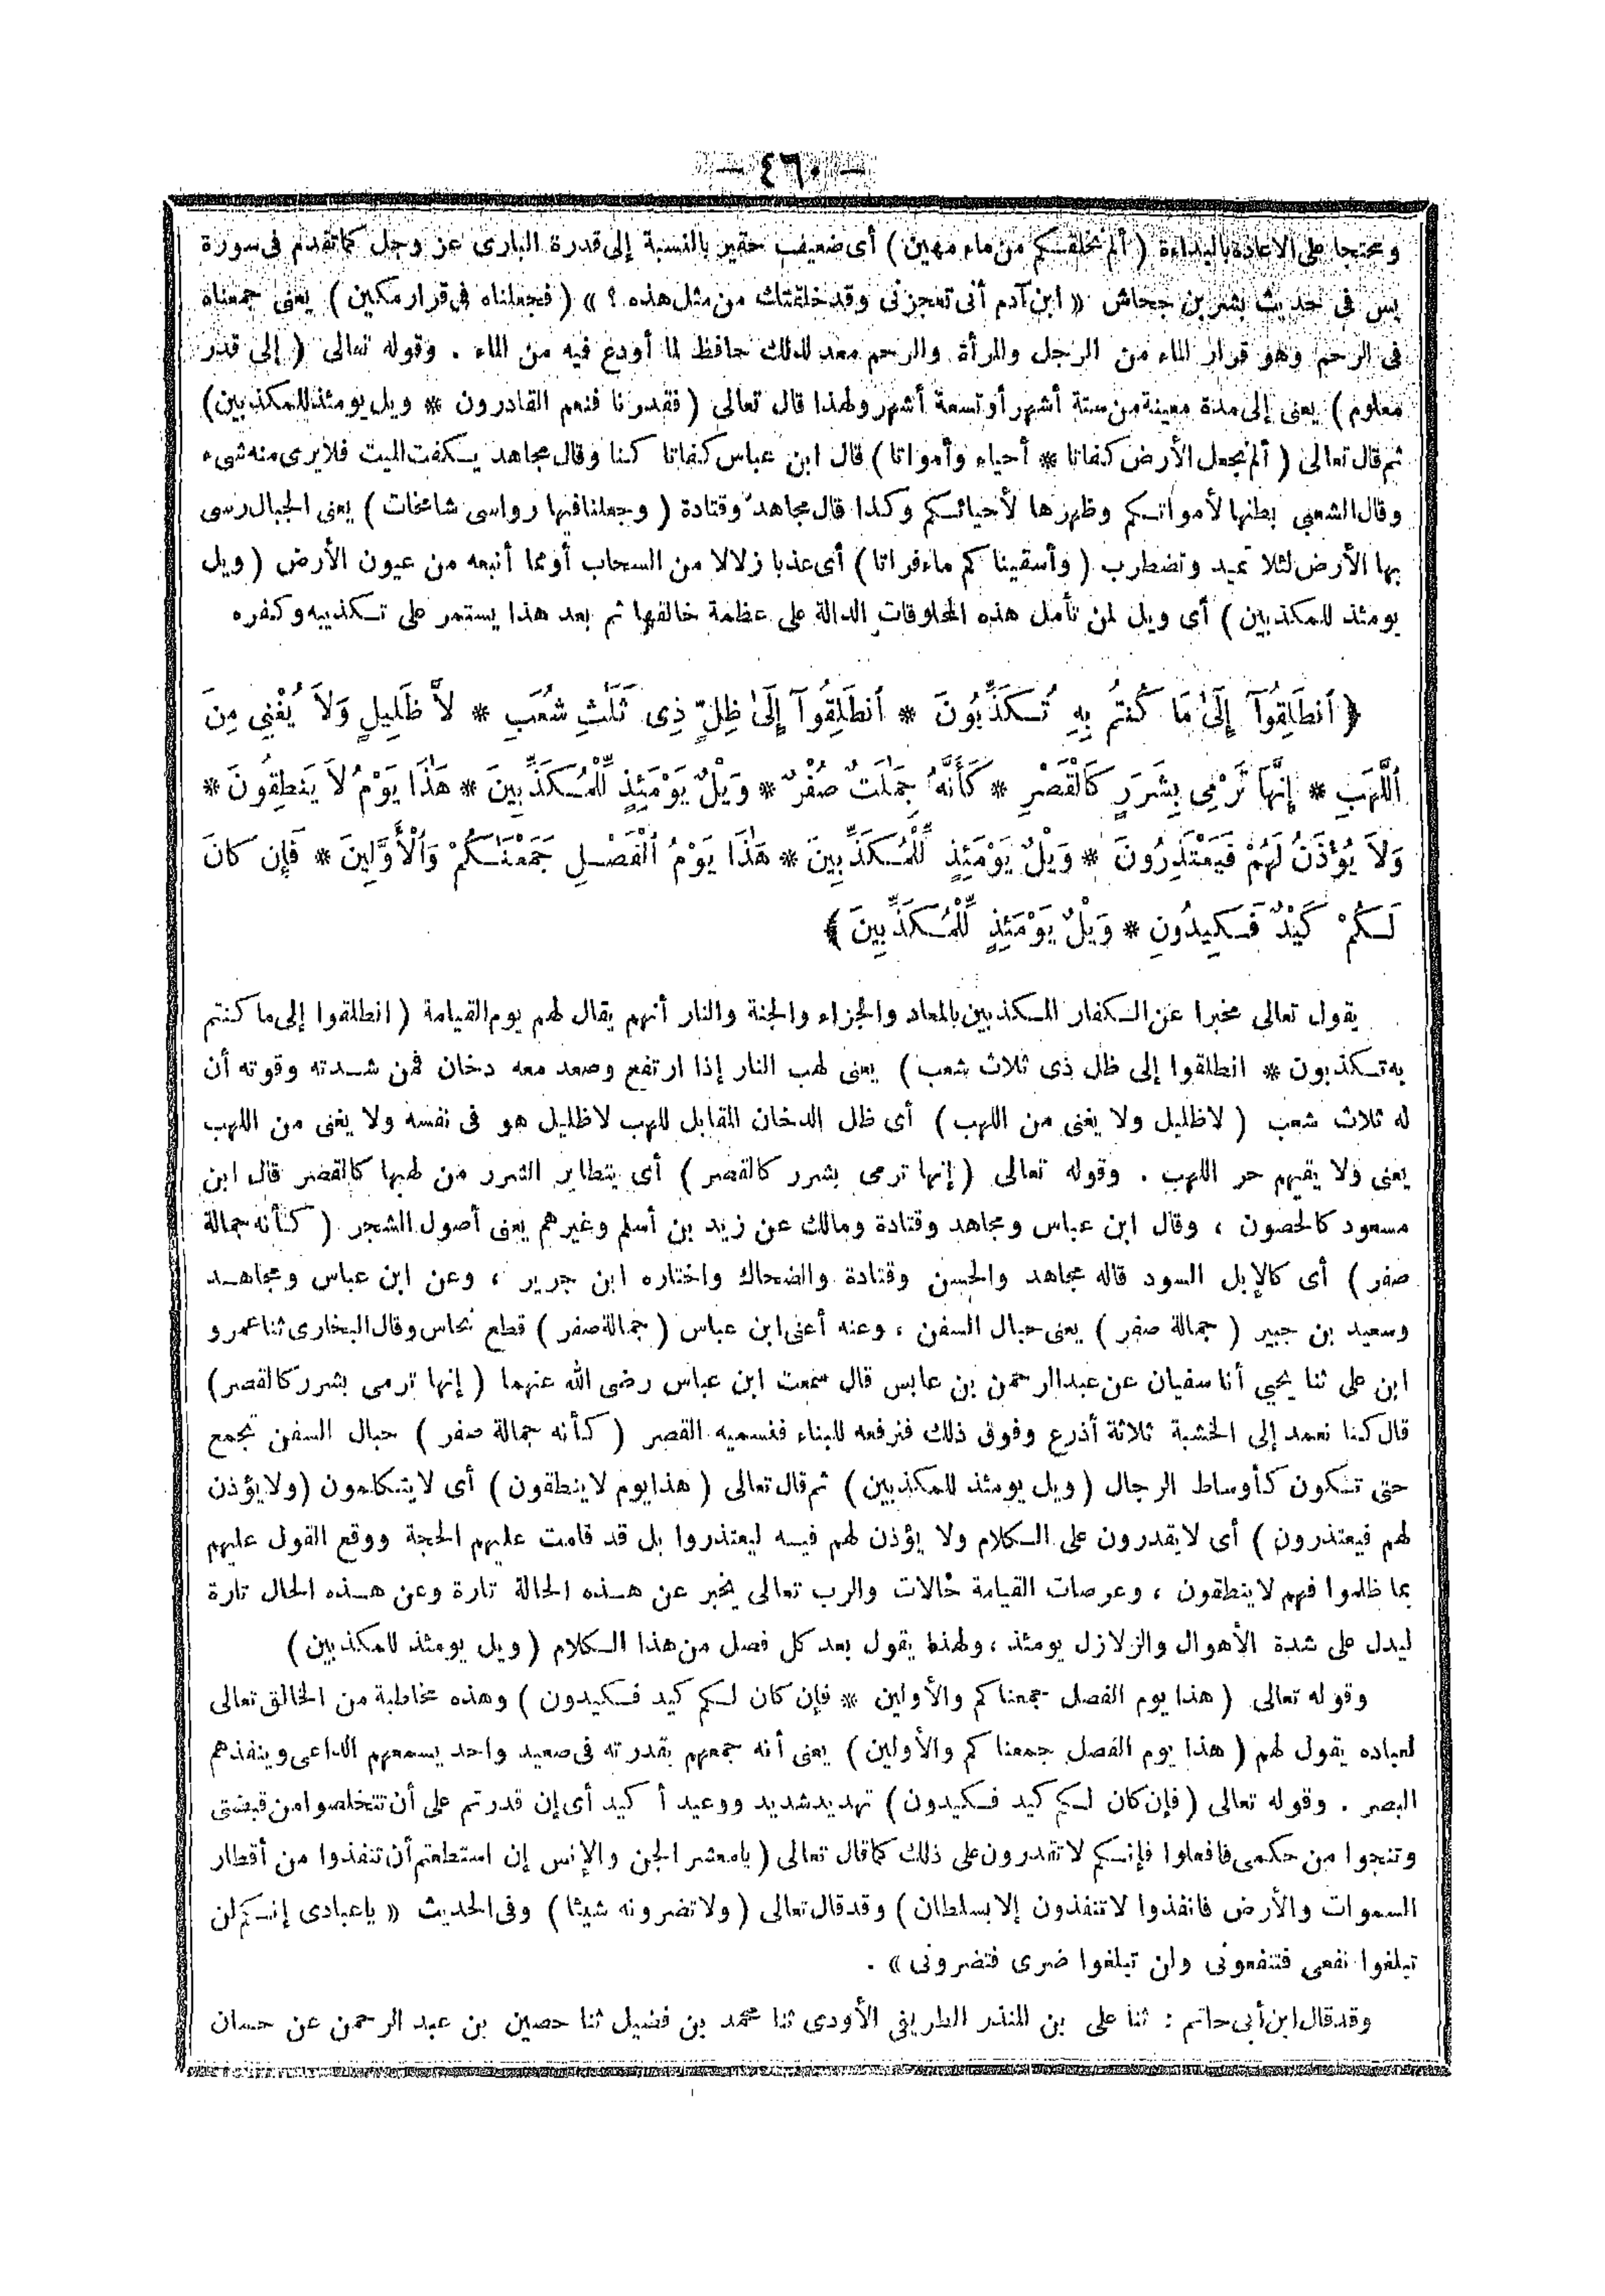 — ٤٦٠ —
ومحتجا على الاعادة بالبداءة ( ألم نخلقكم من ماء مهين ) أى ضعيف حقير بالنسبة إلى قدرة البارى عز وجل كما تقدم فى سورة
يس فى حديث بشر بن جحاش « ابن آدم أنى تعجزنى وقد خلقتك من مثل هذه ؟ » ( فجعلناه فى قرار مكين ) يعنى جمعناه
فى الرحم وهو قرار الماء من الرجل والمرأة والرحم معد لذلك حافظ لما أودع فيه من الماء . وقوله تعالى ( إلى قدر
معلوم ) يعنى إلى مدة معينة من ستة أشهر أو تسعة أشهر ولهذا قال تعالى ( فقدرنا فنعم القادرون * ويل يومئذ للمكذبين )
ثم قال تعالى ( ألم نجعل الأرض كفاتا * أحياء وأمواتا ) قال ابن عباس كفاتا كنا وقال مجاهد يكفت الميت فلا يرى منه شىء
وقال الشعبى بطنها لأمواتكم وظهرها لأحيائكم وكذا قال مجاهد وقتادة ( وجعلنا فيها رواسى شامخات ) يعنى الجبال رسى
بها الأرض لئلا تميد وتضطرب ( وأسقيناكم ماء فراتا ) أى عذبا زلالا من السحاب أو مما أنبعه من عيون الأرض ( ويل
يومئذ للمكذبين ) أى ويل لمن تأمل هذه المخلوقات الدالة على عظمة خالقها ثم بعد هذا يستمر على تكذيبه وكفره
﴿ ٱنطَلِقُوٓا إِلَىٰ مَا كُنتُم بِهِ تُكَذِّبُونَ * ٱنطَلِقُوٓا إِلَىٰ ظِلٍّ ذِى ثَلَٰثِ شُعَبٍ * لاَّ ظَلِيلٍ وَلاَ يُغْنِى مِنَ
ٱللَّهَبِ * إِنَّهَا تَرْمِى بِشَرَرٍ كَٱلْقَصْرِ * كَأَنَّهُ جِمَٰلَتٌ صُفْرٌ * وَيْلٌ يَوْمَئِذٍ لِّلْمُكَذِّبِينَ * هَٰذَا يَوْمُ لاَ يَنطِقُونَ *
وَلاَ يُؤْذَنُ لَهُمْ فَيَعْتَذِرُونَ * وَيْلٌ يَوْمَئِذٍ لِّلْمُكَذِّبِينَ * هَٰذَا يَوْمُ ٱلْفَصْلِ جَمَعْنَٰكُمْ وَٱلْأَوَّلِينَ * فَإِن كَانَ
لَكُمْ كَيْدٌ فَكِيدُونِ * وَيْلٌ يَوْمَئِذٍ لِّلْمُكَذِّبِينَ ﴾
يقول تعالى مخبرا عن الكفار المكذبين بالمعاد والجزاء والجنة والنار أنهم يقال لهم يوم القيامة ( انطلقوا إلى ما كنتم
به تكذبون * انطلقوا إلى ظل ذى ثلاث شعب ) يعنى لهب النار إذا ارتفع وصعد معه دخان فمن شدته وقوته أن
له ثلاث شعب ( لا ظليل ولا يغنى من اللهب ) أى ظل الدخان المقابل للهب لا ظليل هو فى نفسه ولا يغنى من اللهب
يعنى ولا يقيهم حر اللهب . وقوله تعالى ( إنها ترمى بشرر كالقصر ) أى يتطاير الشرر من لهبها كالقصر قال ابن
مسعود كالحصون ، وقال ابن عباس ومجاهد وقتادة ومالك عن زيد بن أسلم وغيرهم يعنى أصول الشجر ( كأنه جمالة
صفر ) أى كالإبل السود قاله مجاهد والحسن وقتادة والضحاك واختاره ابن جرير ، وعن ابن عباس ومجاهد
وسعيد بن جبير ( جمالة صفر ) يعنى حبال السفن ، وعنه أعنى ابن عباس ( جمالة صفر ) قطع نحاس وقال البخارى ثنا عمرو
ابن على ثنا يحيى أنا سفيان عن عبد الرحمن بن عابس قال سمعت ابن عباس رضى الله عنهما ( إنها ترمى بشرر كالقصر )
قال كنا نعمد إلى الخشبة ثلاثة أذرع وفوق ذلك فنرفعه للبناء فنسميه القصر ( كأنه جمالة صفر ) حبال السفن تجمع
حتى تكون كأوساط الرجال ( ويل يومئذ للمكذبين ) ثم قال تعالى ( هذا يوم لا ينطقون ) أى لا يتكلمون ( ولا يؤذن
لهم فيعتذرون ) أى لا يقدرون على الكلام ولا يؤذن لهم فيه ليعتذروا بل قد قامت عليهم الحجة ووقع القول عليهم
بما ظلموا فهم لا ينطقون ، وعرصات القيامة حالات والرب تعالى يخبر عن هذه الحالة تارة وعن هذه الحال تارة
ليدل على شدة الأهوال والزلازل يومئذ ، ولهذا يقول بعد كل فصل من هذا الكلام ( ويل يومئذ للمكذبين )
وقوله تعالى ( هذا يوم الفصل جمعناكم والأولين * فإن كان لكم كيد فكيدون ) وهذه مخاطبة من الخالق تعالى
لعباده يقول لهم ( هذا يوم الفصل جمعناكم والأولين ) يعنى أنه جمعهم بقدرته فى صعيد واحد يسمعهم الداعى وينفذهم
البصر . وقوله تعالى ( فإن كان لكم كيد فكيدون ) تهديد شديد ووعيد أكيد أى إن قدرتم على أن تتخلصوا من قبضتى
وتنجوا من حكمى فافعلوا فإنكم لا تقدرون على ذلك كما قال تعالى ( يا معشر الجن والإنس إن استطعتم أن تنفذوا من أقطار
السموات والأرض فانفذوا لا تنفذون إلا بسلطان ) وقد قال تعالى ( ولا تضرونه شيئا ) وفى الحديث « يا عبادى إنكم لن
تبلغوا نفعى فتنفعونى ولن تبلغوا ضرى فتضرونى » .
وقد قال ابن أبى حاتم : ثنا على بن المنذر الطريقى الأودى ثنا محمد بن فضيل ثنا حصين بن عبد الرحمن عن حسان